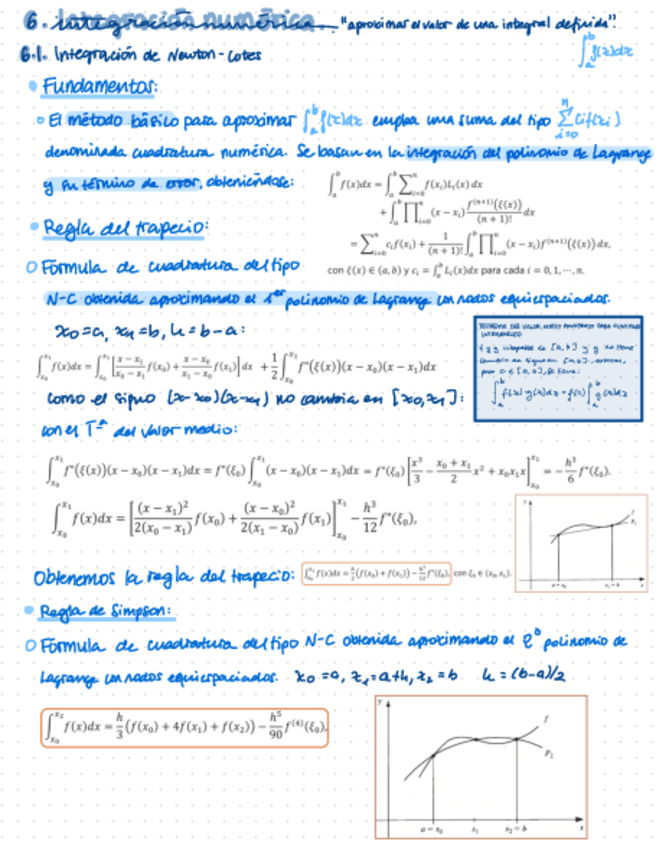 6. Integración numérica "aproximar el valor de una integral definida".
∫_a^b f(x)dx
6.1. Integración de Newton-Cotes
Fundamentos:
El método básico para aproximar ∫_a^b f(x)dx emplea una suma del tipo ∑_{i=0}^n c_i f(x_i)
denominada cuadratura numérica. Se basan en la integración del polinomio de Lagrange
y su término de error, obteniéndose:
∫_a^b f(x)dx = ∫_a^b ∑_{i=0}^n f(x_i)L_i(x) dx
+ ∫_a^b ∏_{i=0}^n (x − x_i) f^{(n+1)}(ξ(x))/(n + 1)! dx
= ∑_{i=0}^n c_i f(x_i) + 1/(n + 1)! ∫_a^b ∏_{i=0}^n (x − x_i) f^{(n+1)}(ξ(x)) dx,
con ξ(x) ∈ (a, b) y c_i = ∫_a^b L_i(x)dx para cada i = 0, 1, ⋯, n.
Regla del trapecio:
Fórmula de cuadratura del tipo
N-C obtenida aproximando el 1er polinomio de Lagrange con nodos equiespaciados.
x0=a, x1=b, h=b-a:
TEOREMA DEL VALOR MEDIO PONDERADO PARA
∫_a^b f(x)·g(x)dx = f(c) ∫_a^b g(x)dx
∫_{x0}^{x1} f(x)dx = ∫_{x0}^{x1} [(x − x1)/(x0 − x1) f(x0) + (x − x0)/(x1 − x0) f(x1)] dx + 1/2 ∫_{x0}^{x1} f''(ξ(x))(x − x0)(x − x1)dx
Como el signo (x-x0)(x-x1) no cambia en [x0,x1]:
con el Tª del valor medio:
∫_{x0}^{x1} f''(ξ(x))(x − x0)(x − x1)dx = f''(ξ0) ∫_{x0}^{x1} (x − x0)(x − x1)dx = f''(ξ0) [x³/3 − (x0 + x1)/2 x² + x0x1x]_{x0}^{x1} = −h³/6 f''(ξ0).
∫_{x0}^{x1} f(x)dx = [(x − x1)²/(2(x0 − x1)) f(x0) + (x − x0)²/(2(x1 − x0)) f(x1)]_{x0}^{x1} − h³/12 f''(ξ0),
y
f
P1
a = x0 x1 = b x
Obtenemos la regla del trapecio: ∫_{x0}^{x1} f(x)dx = h/2 (f(x0) + f(x1)) − h³/12 f''(ξ0), con ξ0 ∈ (x0, x1).
Regla de Simpson:
Fórmula de cuadratura del tipo N-C obtenida aproximando el 2º polinomio de
Lagrange con nodos equiespaciados. x0=a, x1=a+h, x2=b h=(b-a)/2
∫_{x0}^{x2} f(x)dx = h/3 (f(x0) + 4f(x1) + f(x2)) − h⁵/90 f^{(4)}(ξ0),
y
f
P2
a = x0 x1 x2 = b x